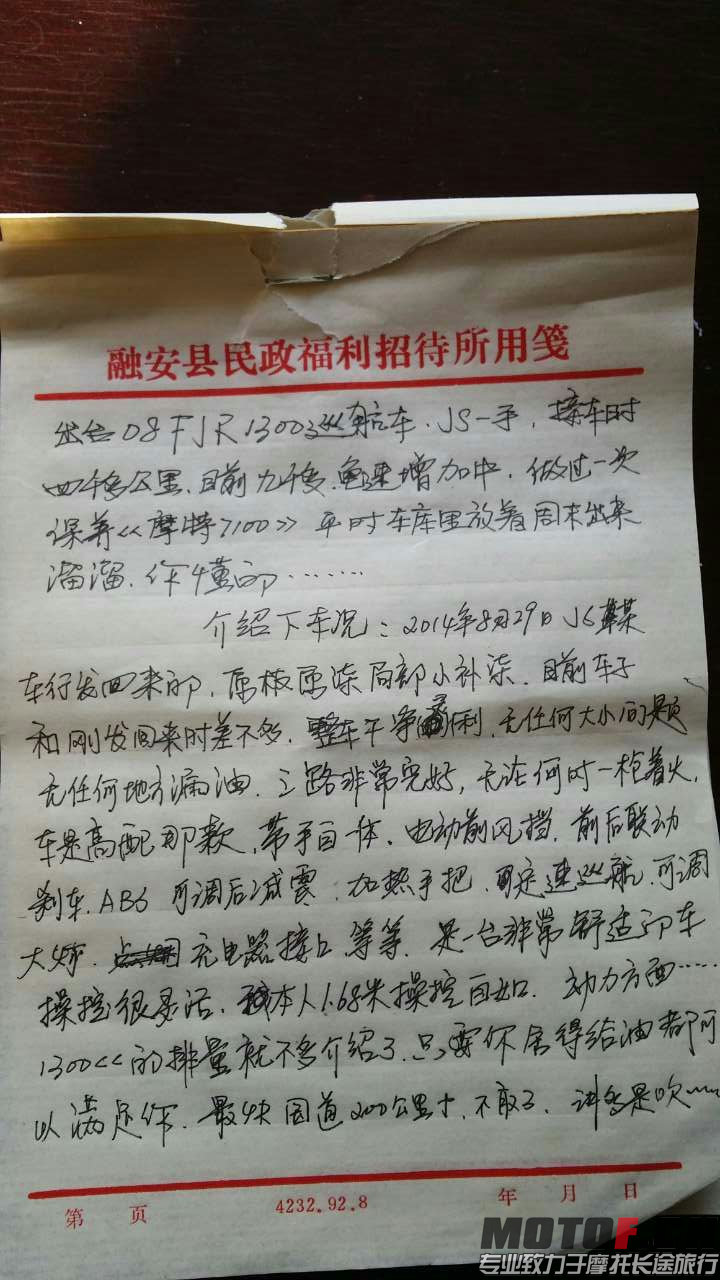 融安县民政福利招待所用笺
出台08FJR1300巡航车.JS一手,接车时
四千多公里.目前九千多.龟速增加中.做过一次
保养<<摩特7100>>平时车库里放着周末出来
溜溜.你懂的.......
介绍下车况:2014年8月29日JS某
车行发回来的,原板原漆局部小补漆.目前车子
和刚发回来时差不多.整车干净利.无任何大小问题
无任何地方漏油.三路非常完好,无论何时一枪着火,
车是高配那款,带手自一体.电动前风挡.前后联动
刹车.ABS可调后减震.加热手把.定速巡航.可调
大灯.充电器接口等等.是一台非常舒适的车
操控很灵活.本人1.68米操控自如.动力方面.....
1300<<的排量就不多介绍了.只要你舍得给油都可
以满足你.最快国道200公里+.不敢了.讲多是吹~~
第 页 4232.92.8 年 月 日
MOTOF
专业致力于摩托长途旅行